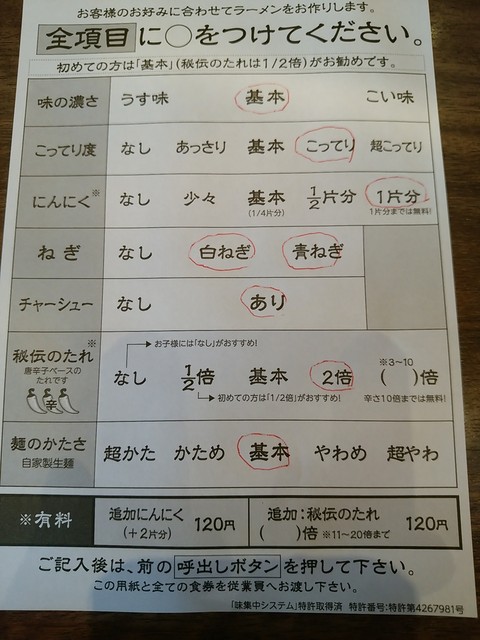 お客様のお好みに合わせてラーメンをお作りします。
全項目に○をつけてください。
初めての方は「基本」(秘伝のたれは1/2倍)がお勧めです。
味の濃さ うす味 基本 こい味
こってり度 なし あっさり 基本 こってり 超こってり
にんにく※ なし 少々 基本 1/2片分 1片分
(1/4片分) 1片分までは無料!
ねぎ なし 白ねぎ 青ねぎ
チャーシュー なし あり
お子様には「なし」がおすすめ!
秘伝のたれ※ なし 1/2倍 基本 2倍 ※3~10 ( )倍
唐辛子ベースの
たれです
辛
初めての方は「1/2倍」がおすすめ! 辛さ10倍までは無料!
麺のかたさ 超かた かため 基本 やわめ 超やわ
自家製生麺
※有料 追加にんにく (+2片分) 120円 追加:秘伝のたれ ( )倍 ※11~20倍まで 120円
ご記入後は、前の呼出しボタンを押して下さい。
この用紙と全ての食券を従業員へお渡し下さい。
「味集中システム」特許取得済 特許番号:特許第4267981号